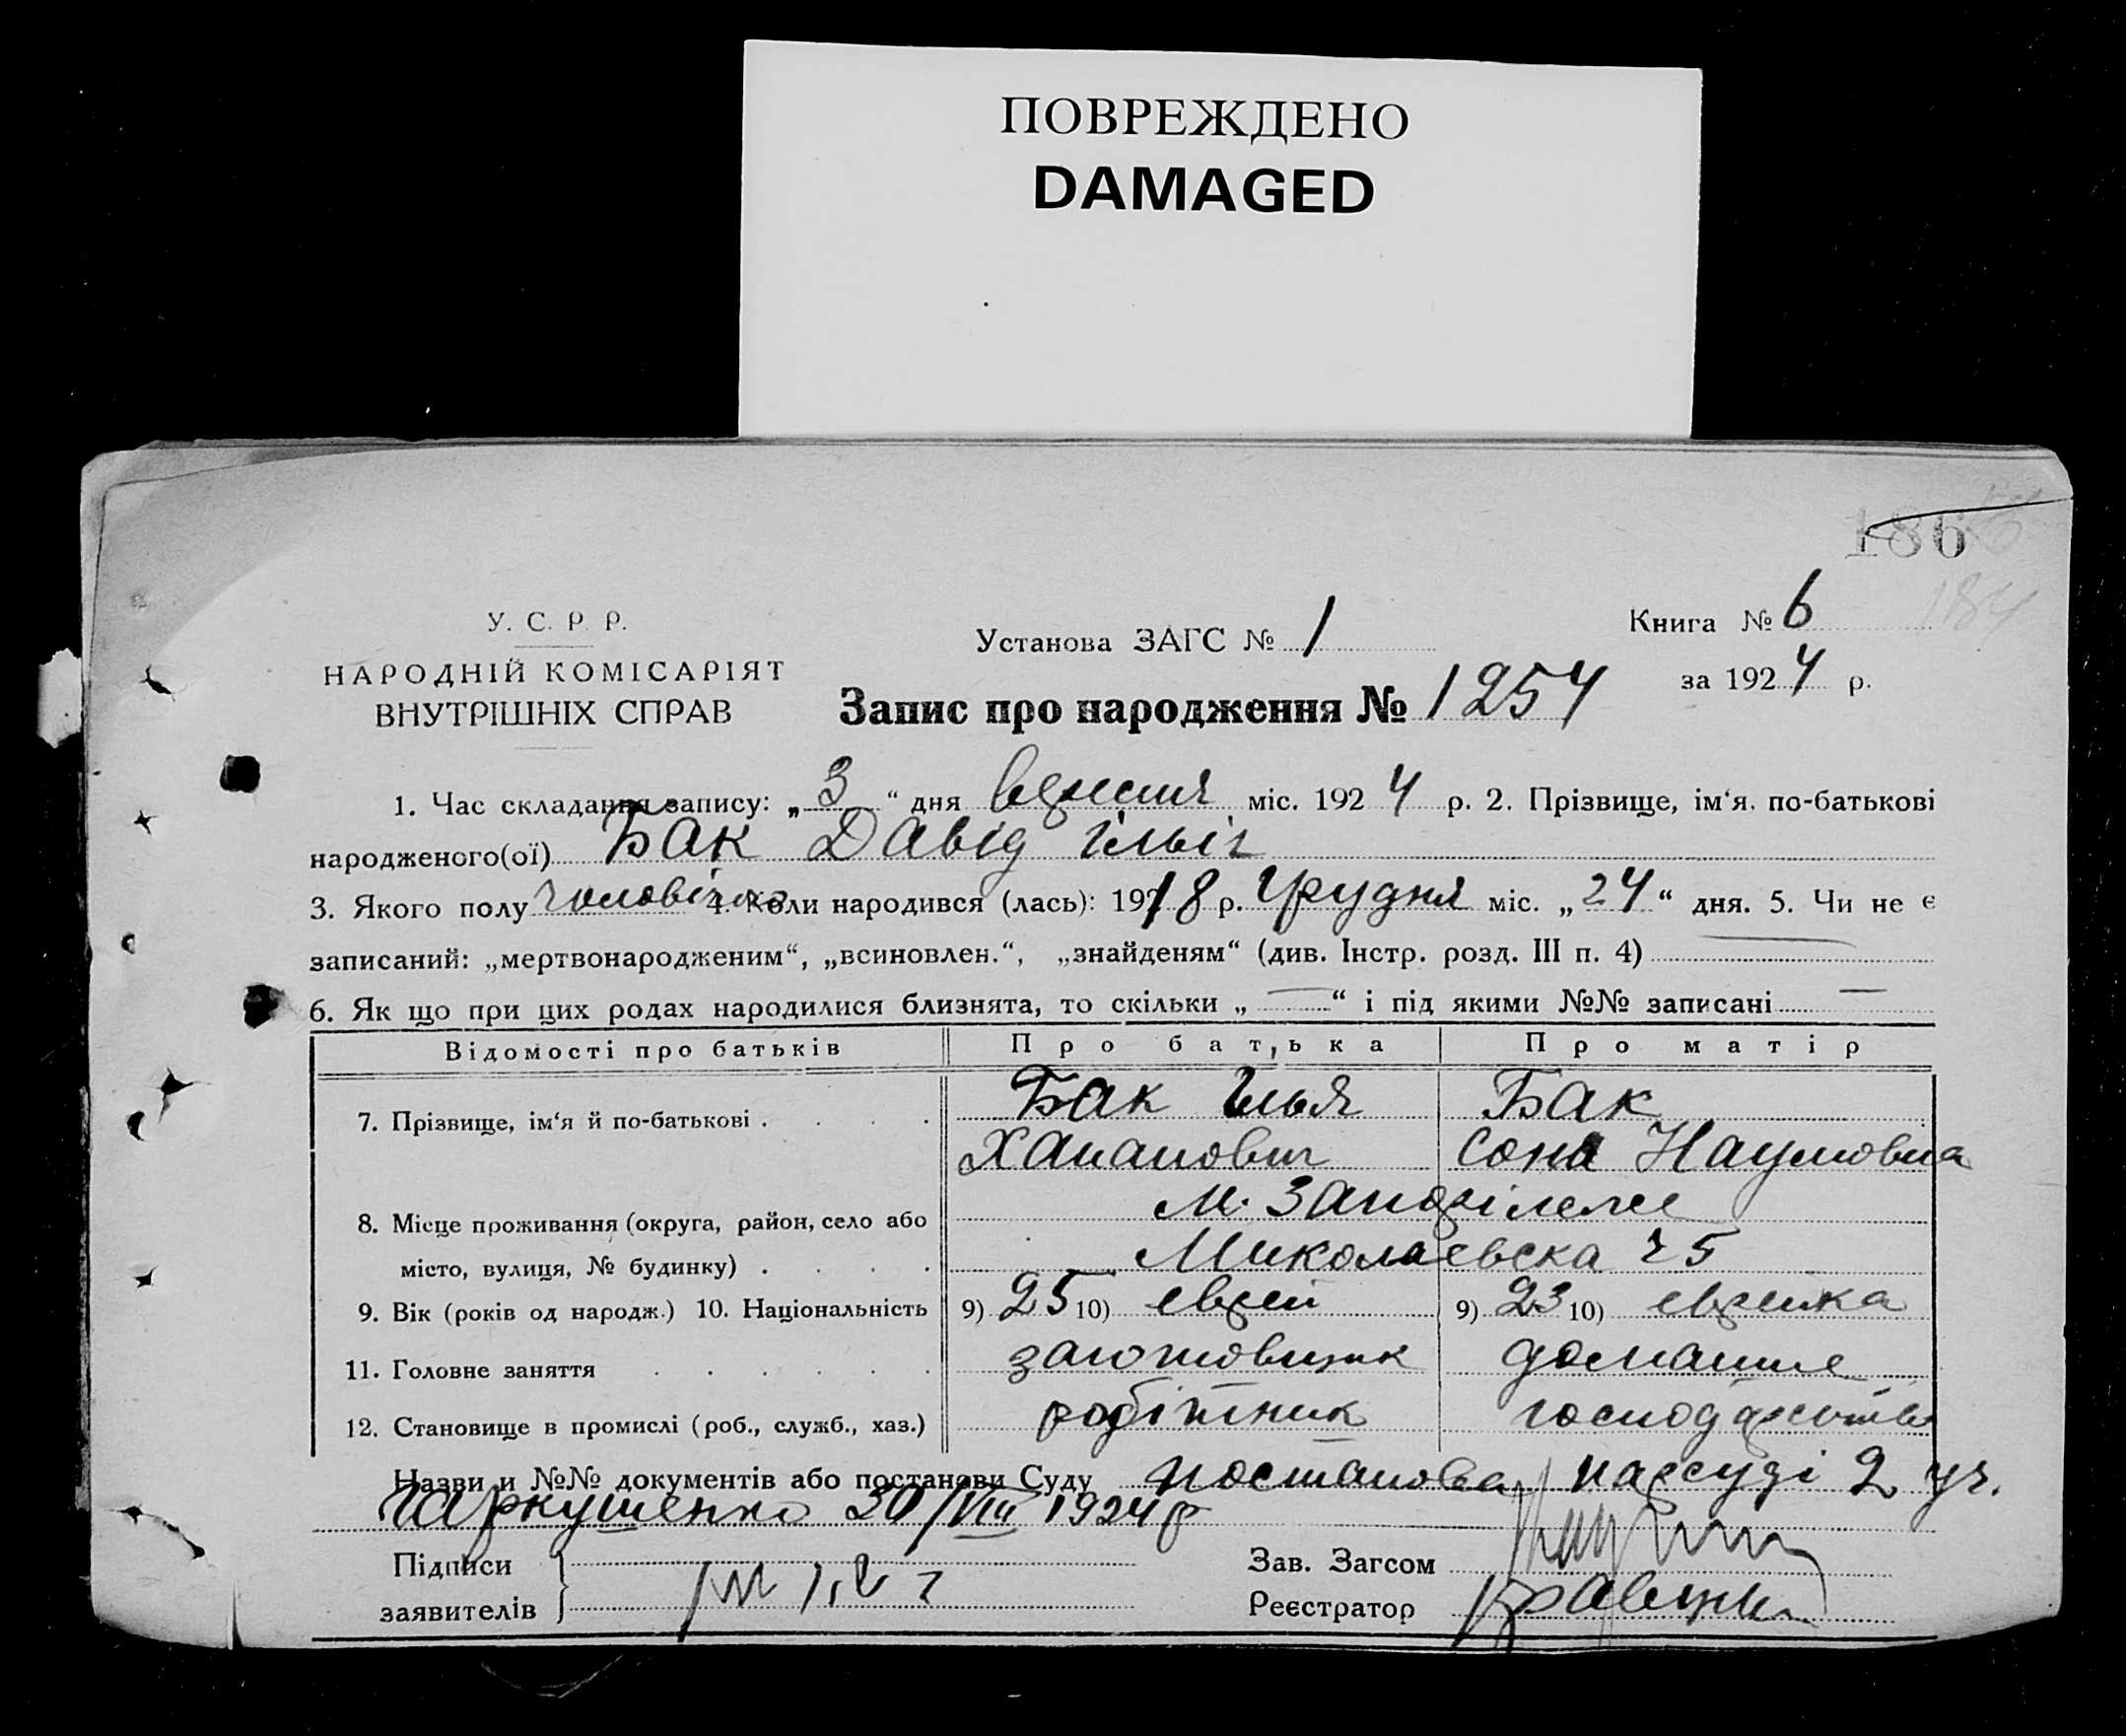 ПОВРЕЖДЕНО
DAMAGED
186
184
У. С. Р. Р.
НАРОДНІЙ КОМІСАРІЯТ
ВНУТРІШНІХ СПРАВ
Установа ЗАГС № 1
Книга № 6
за 1924 р.
Запис про народження № 1254
1. Час складання запису: „3“ дня вересня міс. 1924 р. 2. Прізвище, ім‘я, по-батькові
народженого(ої) Бак Давід Ільіч
3. Якого полу чоловічого 4. Коли народився (лась): 1918 р. Грудня міс. „24“ дня. 5. Чи не є
записаний: „мертвонародженим“, „всиновлен.“, „знайденям“ (див. Інстр. розд. III п. 4)
6. Як що при цих родах народилися близнята, то скільки „—“ і під якими №№ записані —
Відомості про батьків Про батька Про матір
7. Прізвище, ім‘я й по-батькові . . . . Бак Илья Бак
Хананович Соня Наумовна
8. Місце проживання (округа, район, село або м.
місто, вулиця, № будинку) . . . . Миколаевска 25
9. Вік (років од народж.) 10. Національність 9) 25 10) еврей 9) 23 10) еврейка
11. Головне заняття . . . . . . заготовщик домашне
12. Становище в промислі (роб., служб., хаз.) робітник господарство
Назви и №№ документів або постанови Суду постанова нарсуді 2 уч.
Гаркушенко 20/VIII 1924 р
Підписи
заявителів
Зав. Загсом
Реєстратор